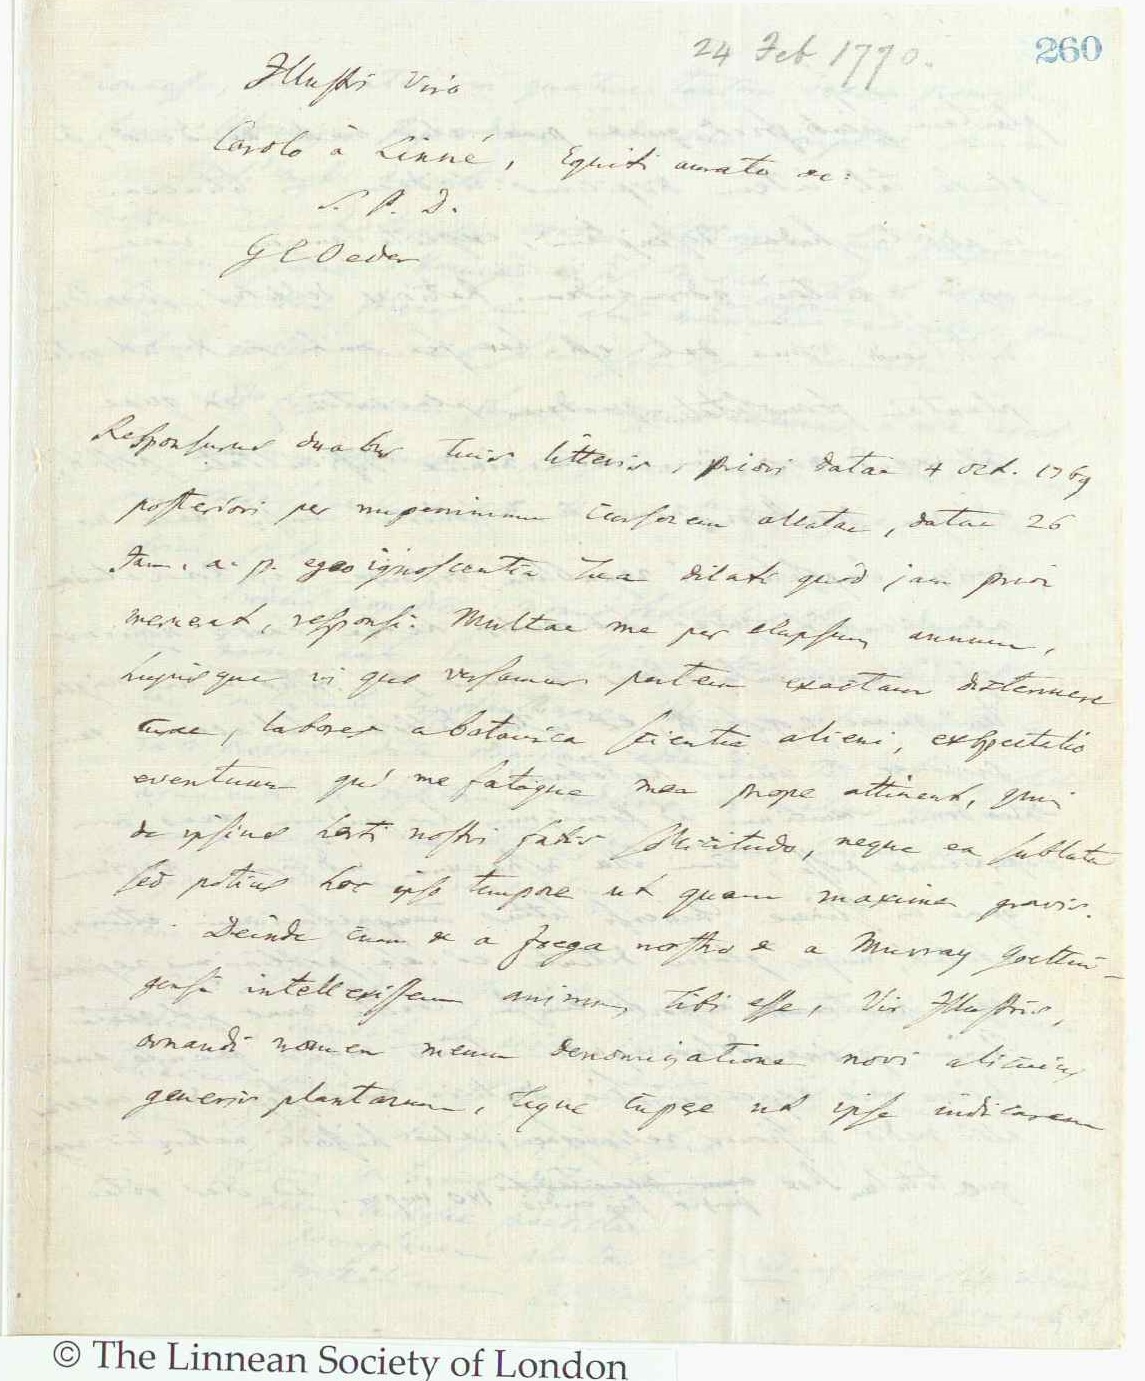 24 Feb 1770.
260
Illustri Viro
Carolo à Linné, Equiti aurato &c:
S. P. D.
G C Oeder
Responsurus duabus tuis litteris, priori datae 4 Oct. 1769
posteriori per nuperrimum cursorem allatae, datae 26
Jan. a. p. egeo ignoscentia tua dilati quod jam prior
meruerat, responsi. Multae me per elapsum annum,
hujusque in quo versamur partem exactam distinuere
curae, labores a botanica scientia alieni, exspectatio
eventuum qui me fataque mea prope attinent, quin
de ipsius horti nostri fatis sollicitudo, neque ea sublata
sed potius hoc ipso tempore ut quam maxime gravis.
Deinde cum & a Zoega nostro & a Murray Goettin-
gensi intellexissem animum tibi esse, Vir Illustris,
ornandi nomen meum denominatione novi alicujus
generis plantarum, teque cupere ut ipse indicarem
© The Linnean Society of London